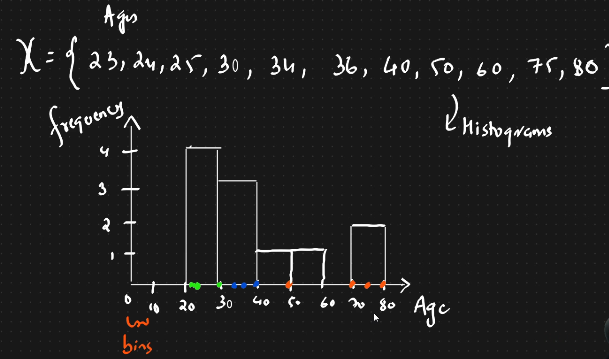 Ages
X = { 23, 24, 25, 30, 34, 36, 40, 50, 60, 75, 80 }
Histograms
frequency
4
3
2
1
0 10 20 30 40 50 60 70 80 Age
bins